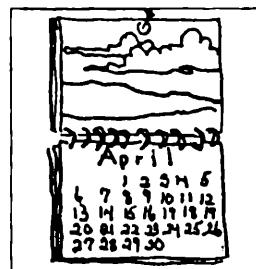 April
1 2 3 4 5
6 7 8 9 10 11 12
13 14 15 16 17 18 19
20 21 22 23 24 25 26
27 28 29 30